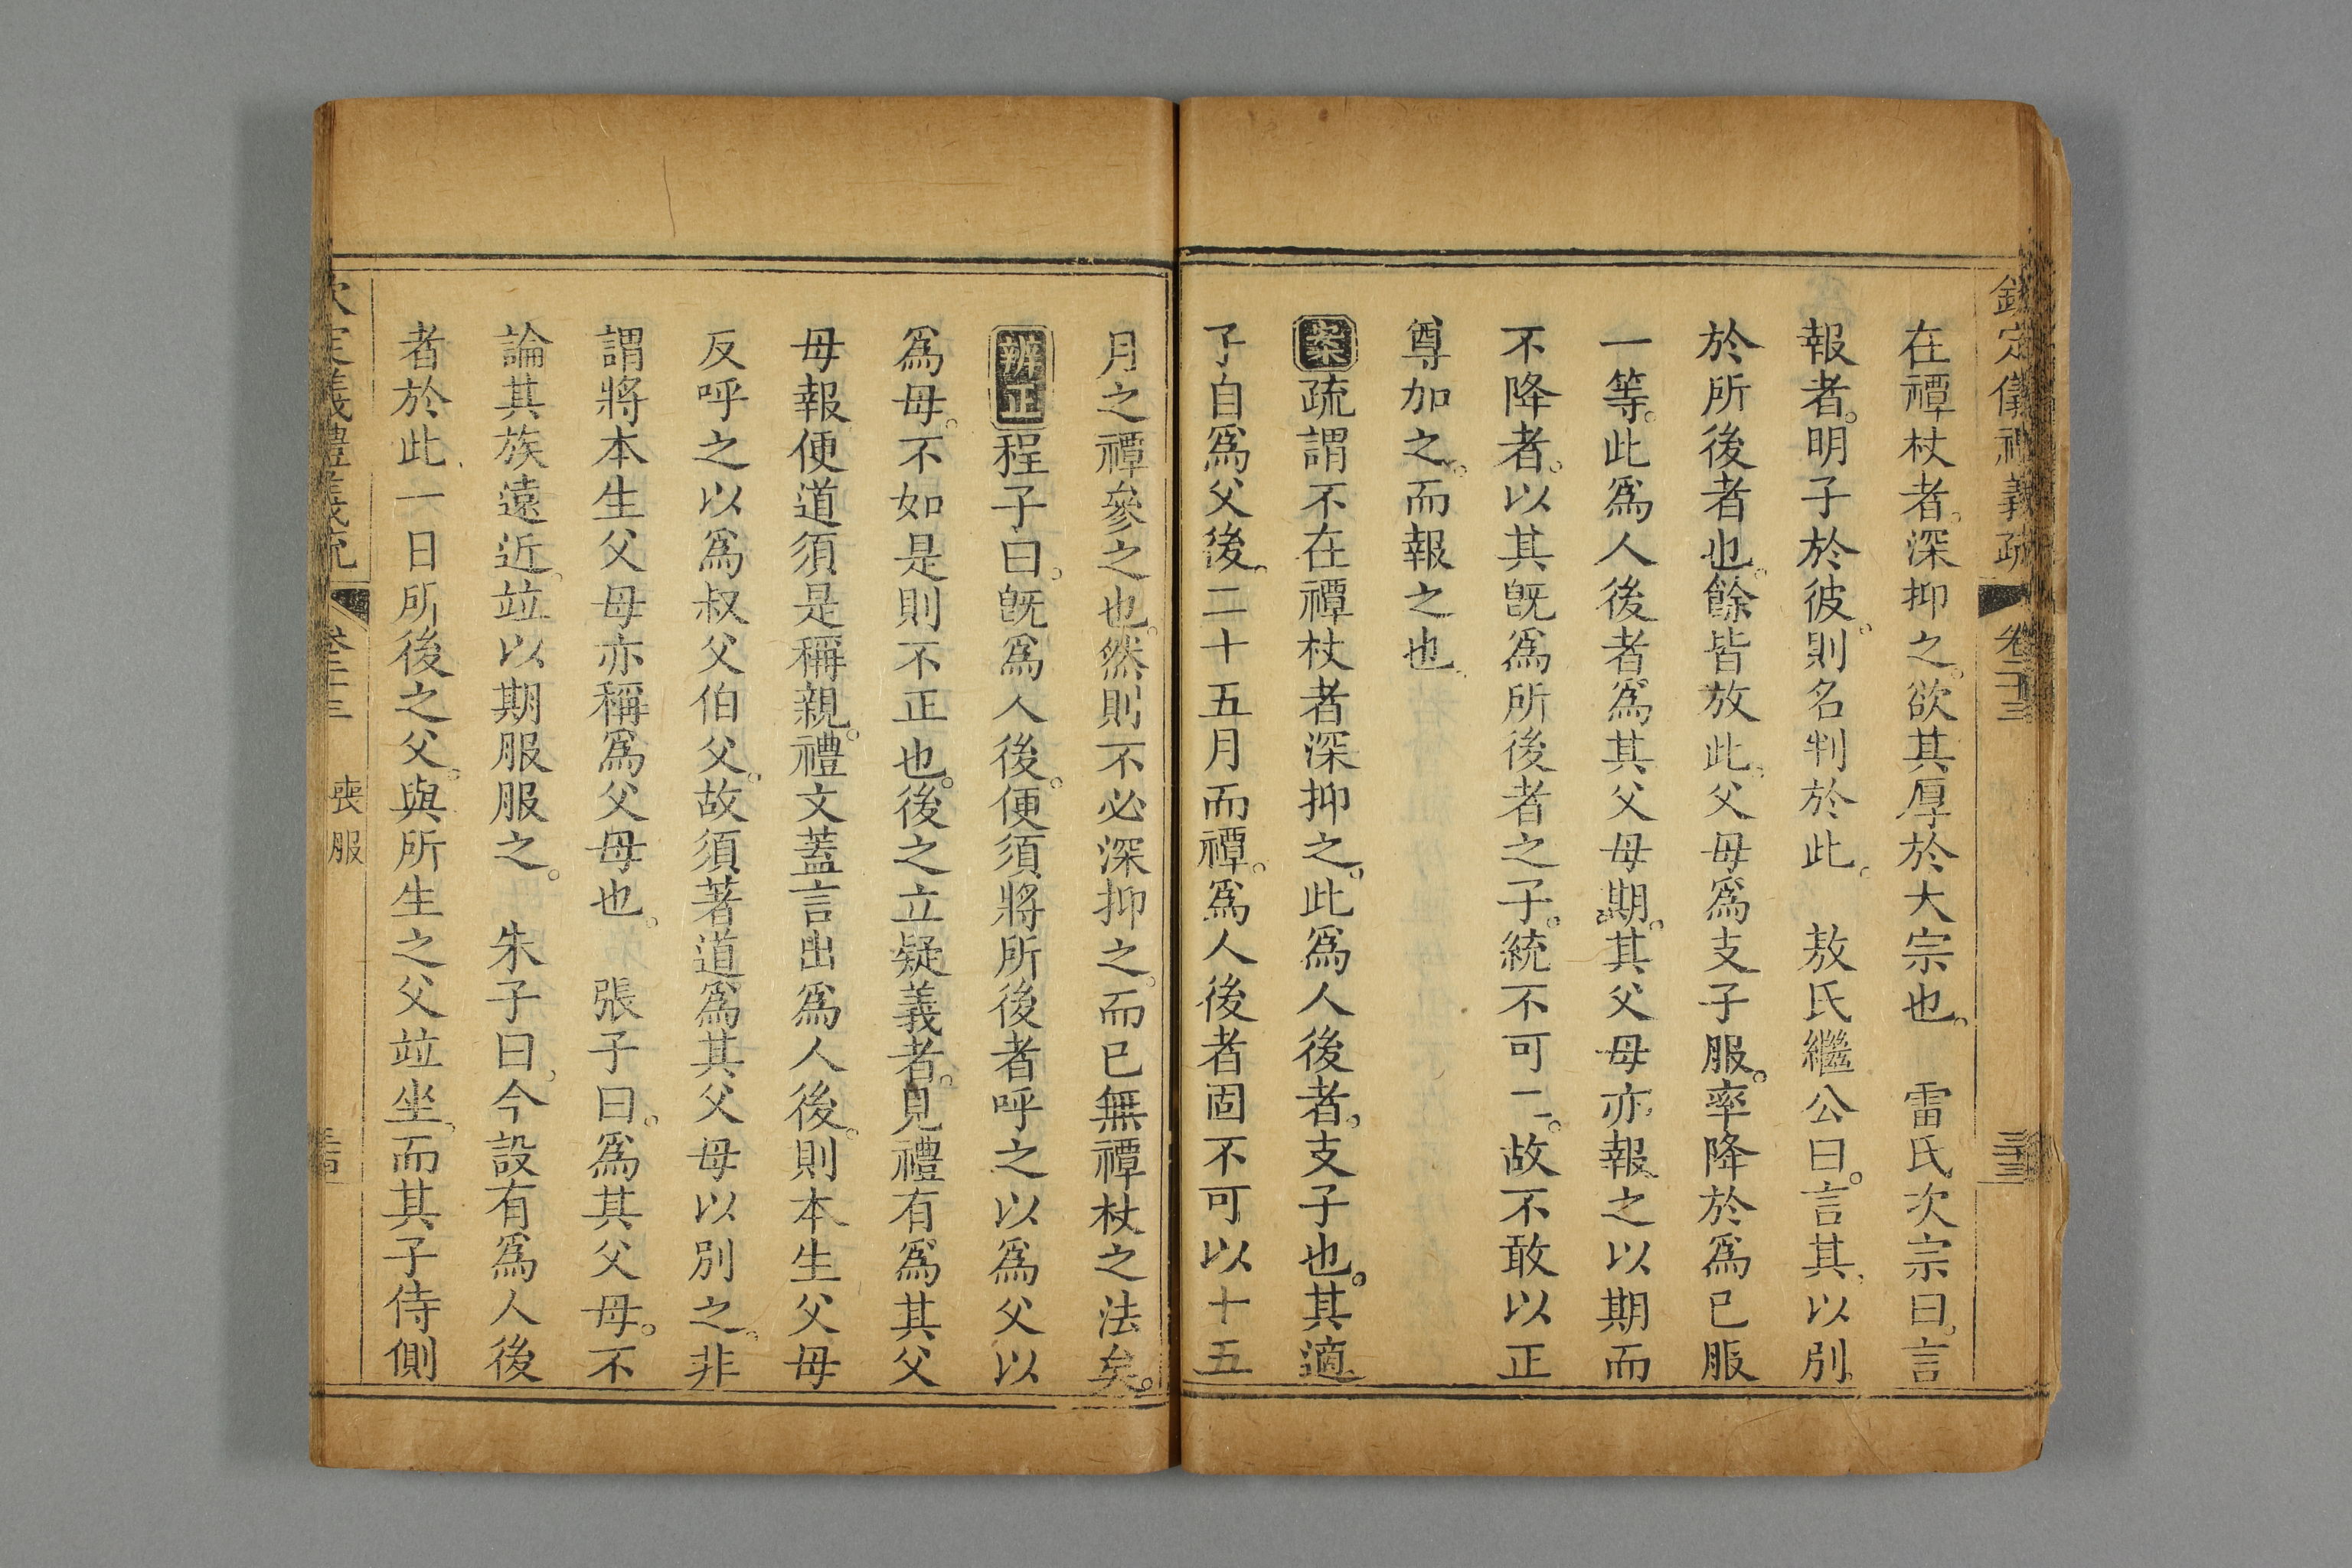 欽定儀禮義疏 卷二十三 三十三
在禫杖者。深抑之。欲其厚於大宗也。 雷氏次宗曰。言
報者。明子於彼。則名判於此。 敖氏繼公曰。言其。以別
於所後者也。餘皆放此。父母爲支子服。率降於爲己服
一等。此爲人後者。爲其父母期。其父母亦報之以期而
不降者。以其旣爲所後者之子。統不可二。故不敢以正
尊加之。而報之也。
案疏謂不在禫杖者深抑之。此爲人後者。支子也。其適
子自爲父後。二十五月而禫。爲人後者固不可以十五
月之禫參之也。然則不必深抑之。而已無禫杖之法矣。
辨正程子曰。旣爲人後。便須將所後者呼之以爲父以
爲母。不如是則不正也。後之立疑義者。見禮有爲其父
母報便道須是稱親。禮文蓋言出爲人後。則本生父母
反呼之以爲叔父伯父。故須著道爲其父母以別之。非
謂將本生父母亦稱爲父母也。 張子曰。爲其父母。不
論其族遠近。竝以期服服之。 朱子曰。今設有爲人後
者於此。一日所後之父。與所生之父竝坐。而其子侍側
喪服